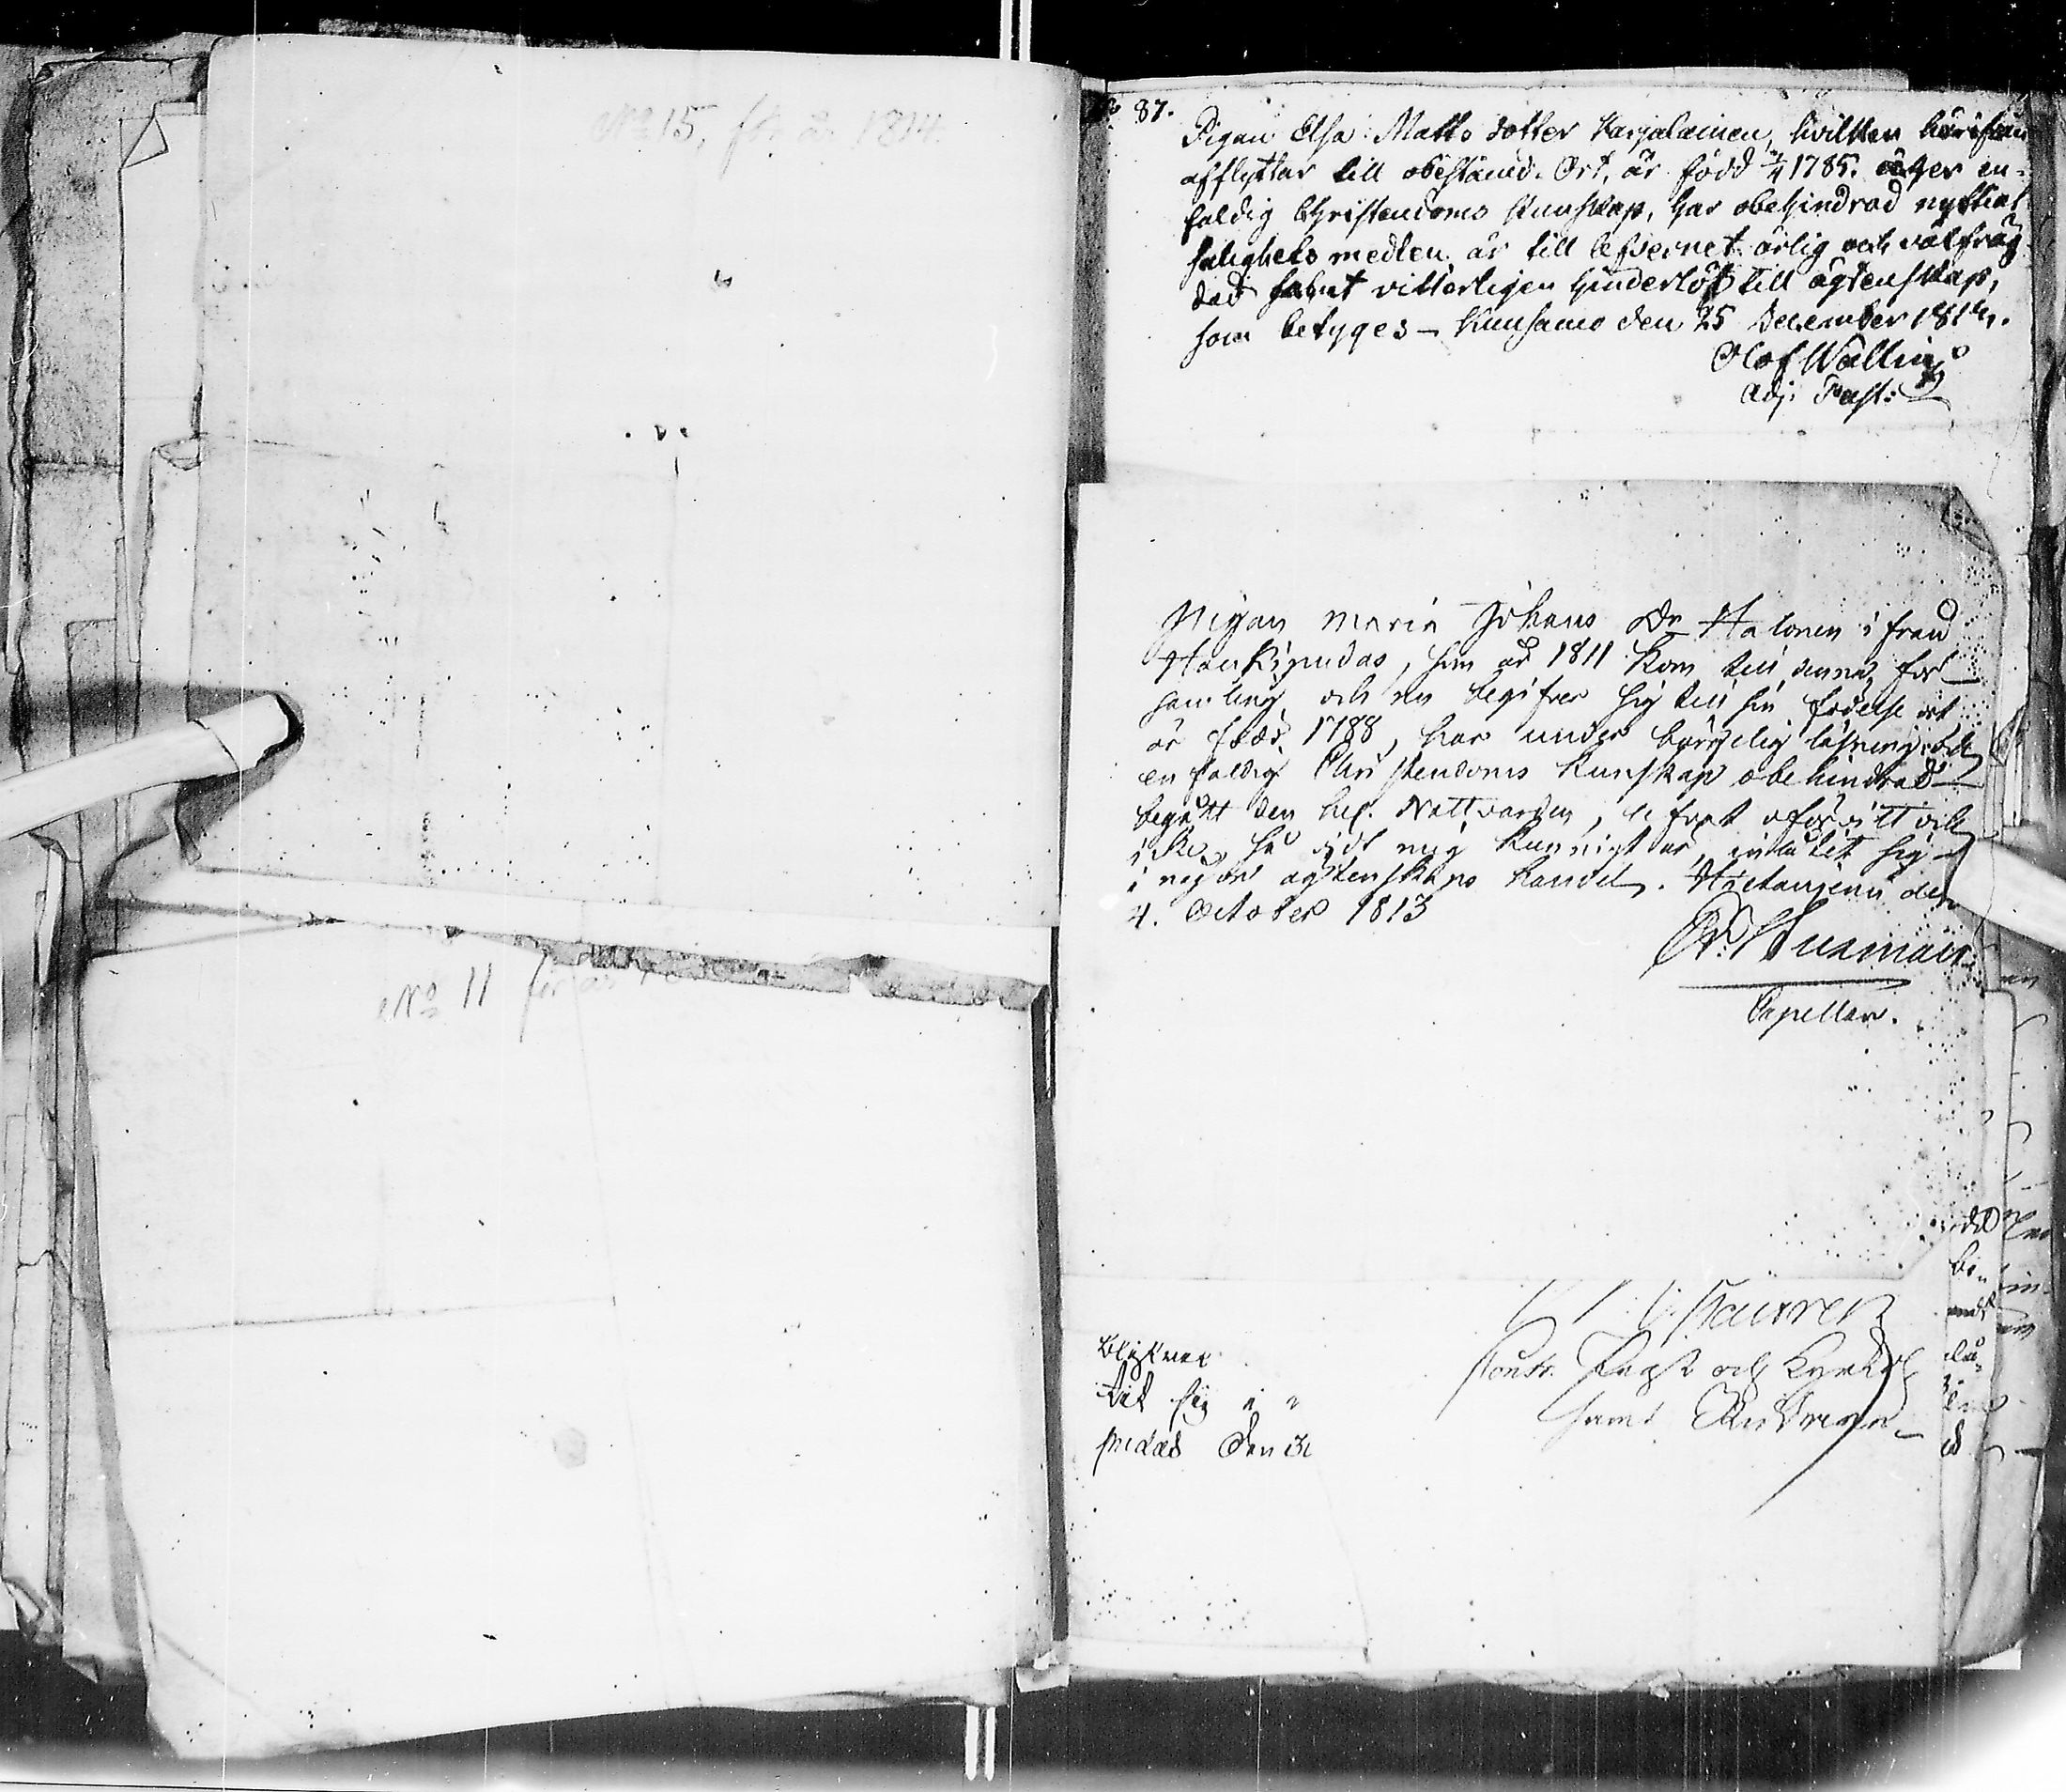 No 15, för år 1814.
No 11 för år
No 87.
Pigan Elsa Matts dotter Karjalainen, hvilken härifrån
afflyttar till obestämd Ort, är född 1/4 1785. äger en-
faldig Christendoms kunskap, har obehindrad nyttiat
salighets medlen, är till lefvernet ärlig och välfräg-
dad samt vitterligen hinderlös till ägtenskap,
som betyges – Kuusamo den 25 December 1814.
Olof Wallin
Adj. Past:
Pigan Maria Johans Dr Halonen ifrån
Haukipudas, som år 1811 kom till denna för-
samling och nu begifver sig till sin födelse ort
är född 1788, har under börgelig läsning och
enfaldig Christendoms kunskap obehindrad
begått den hel. Nattvarden, lefvat oförvitt och
icke, så vidt mig kunnigt är, inlåtit sig
i någon ägtenskaps handel. Hietaniemi den
4. October 1813
Capellan.
blifvit
tit sig i
pudas den 31
Past och Kyrkoh
samt